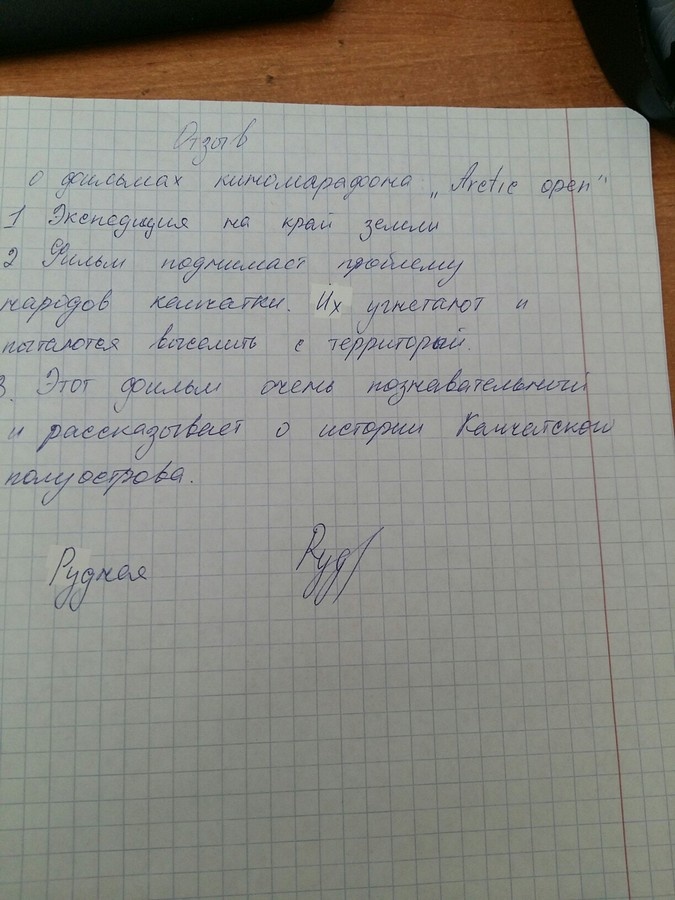 Отзыв
о фильмах киномарафона „Arctic open"
1 Экспедиция на край земли
2 Фильм поднимает проблему
народов камчатки. Их угнетают и
пытаются выселить с территорый.
3. Этот фильм очень познавательный
и рассказывает о истории Камчатского
полуострова.
Рудная Руд